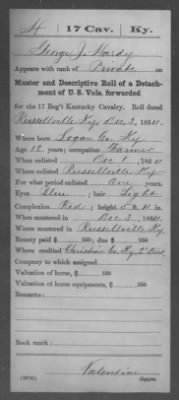 H | 17 Cav. | Ky.
George J. Hardy
Appears with rank of Private on
Muster and Descriptive Roll of a Detachment of U. S. Vols. forwarded
for the 17 Reg't Kentucky Cavalry. Roll dated
Russellville Ky. Dec. 3, 1864.
Where born Logan Co. Ky.
Age 18 y'rs; occupation Farmer
When enlisted Dec 1, 1864.
Where enlisted Russellville Ky.
For what period enlisted one years.
Eyes Blue; hair Light
Complexion Red; height 5 ft. in.
When mustered in Dec 3, 1864.
Where mustered in Russellville Ky.
Bounty paid $ 100; due $ 100
Where credited Christian Co. Ky. 2" Dist.
Company to which assigned
Valuation of horse, $ 100
Valuation of horse equipments, $ 100
Remarks:
Book mark:
Valentine
Copyist.